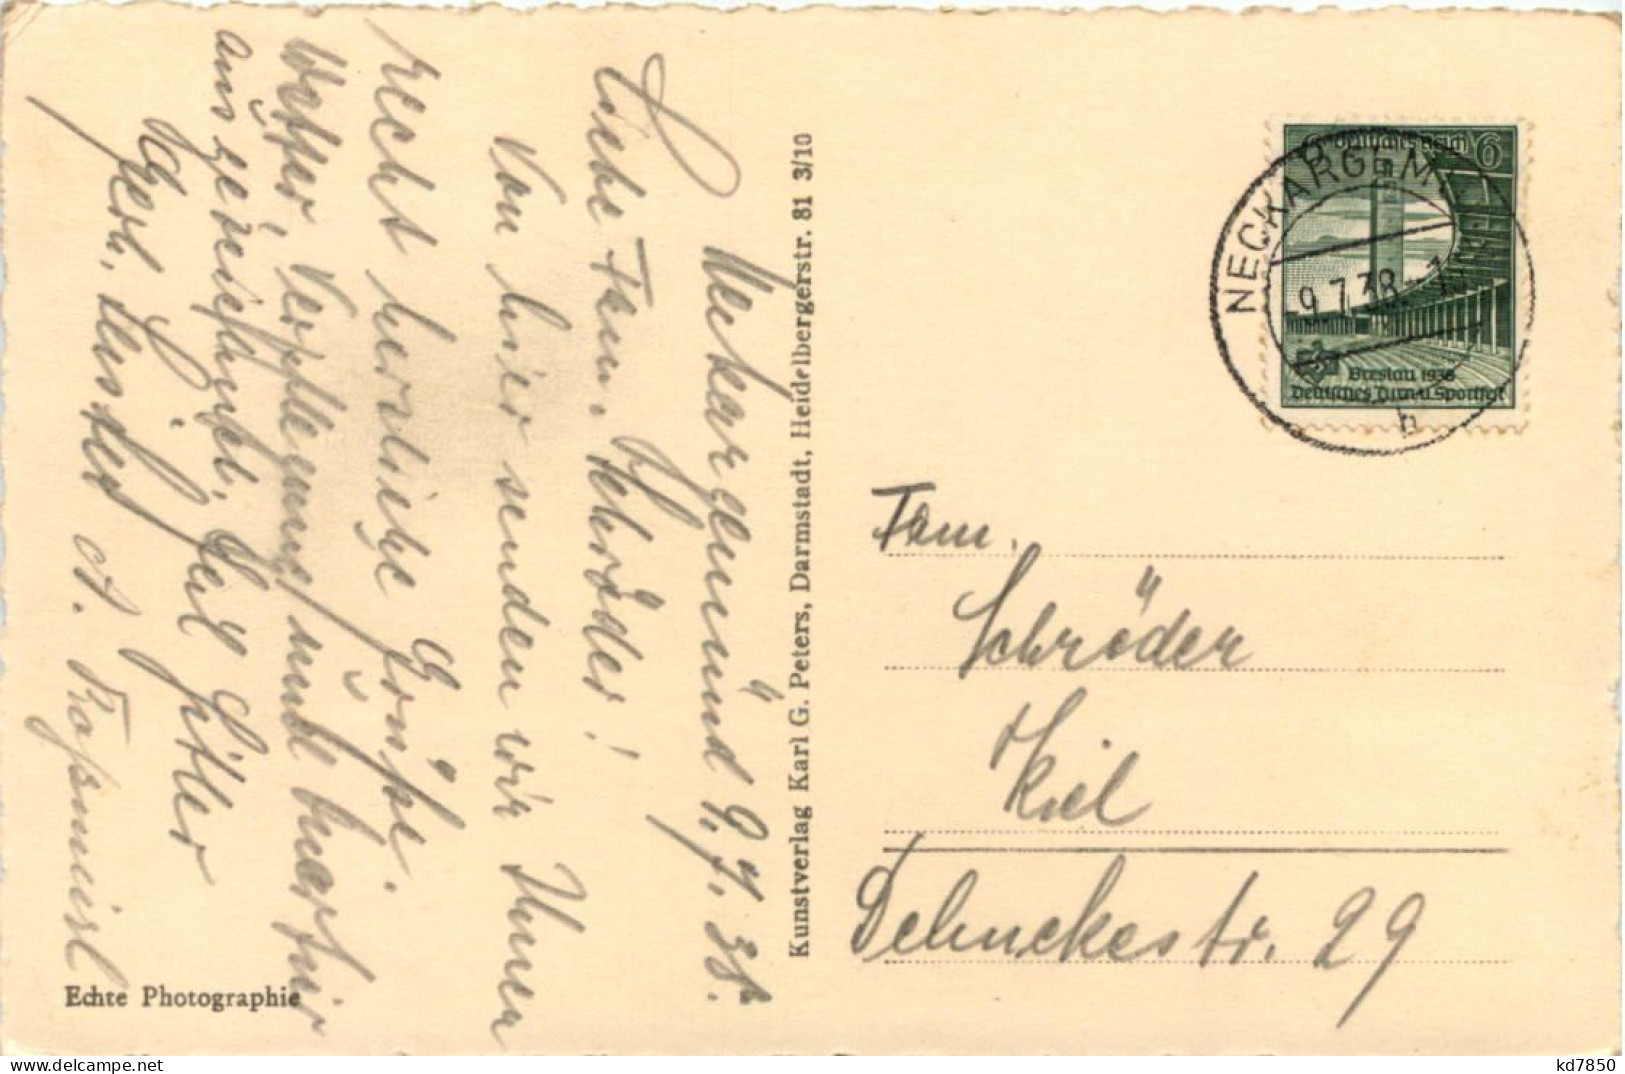 Neckargemünd 9.7.38.
Liebe Fam. Schröder!
Von hier senden wir Ihnen
recht herzliche Grüße.
Wetter, Verpflegung und Quartier
ausgezeichnet. Heil Hitler
A.
Echte Photographie
Kunstverlag Karl G. Peters, Darmstadt, Heidelbergerstr. 81 3/10
Deutsches Reich 6
Breslau 1938
Deutsches Turn-u. Sportfest
NECKARGEM
9.7.38
b
Fam.
Schröder
Kiel
Dehnckestr. 29
kd7850